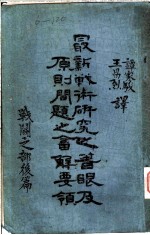 譚家駿
譯
最新戰術研究之着眼及
原則問題之答解要領
戰鬪之部後篇